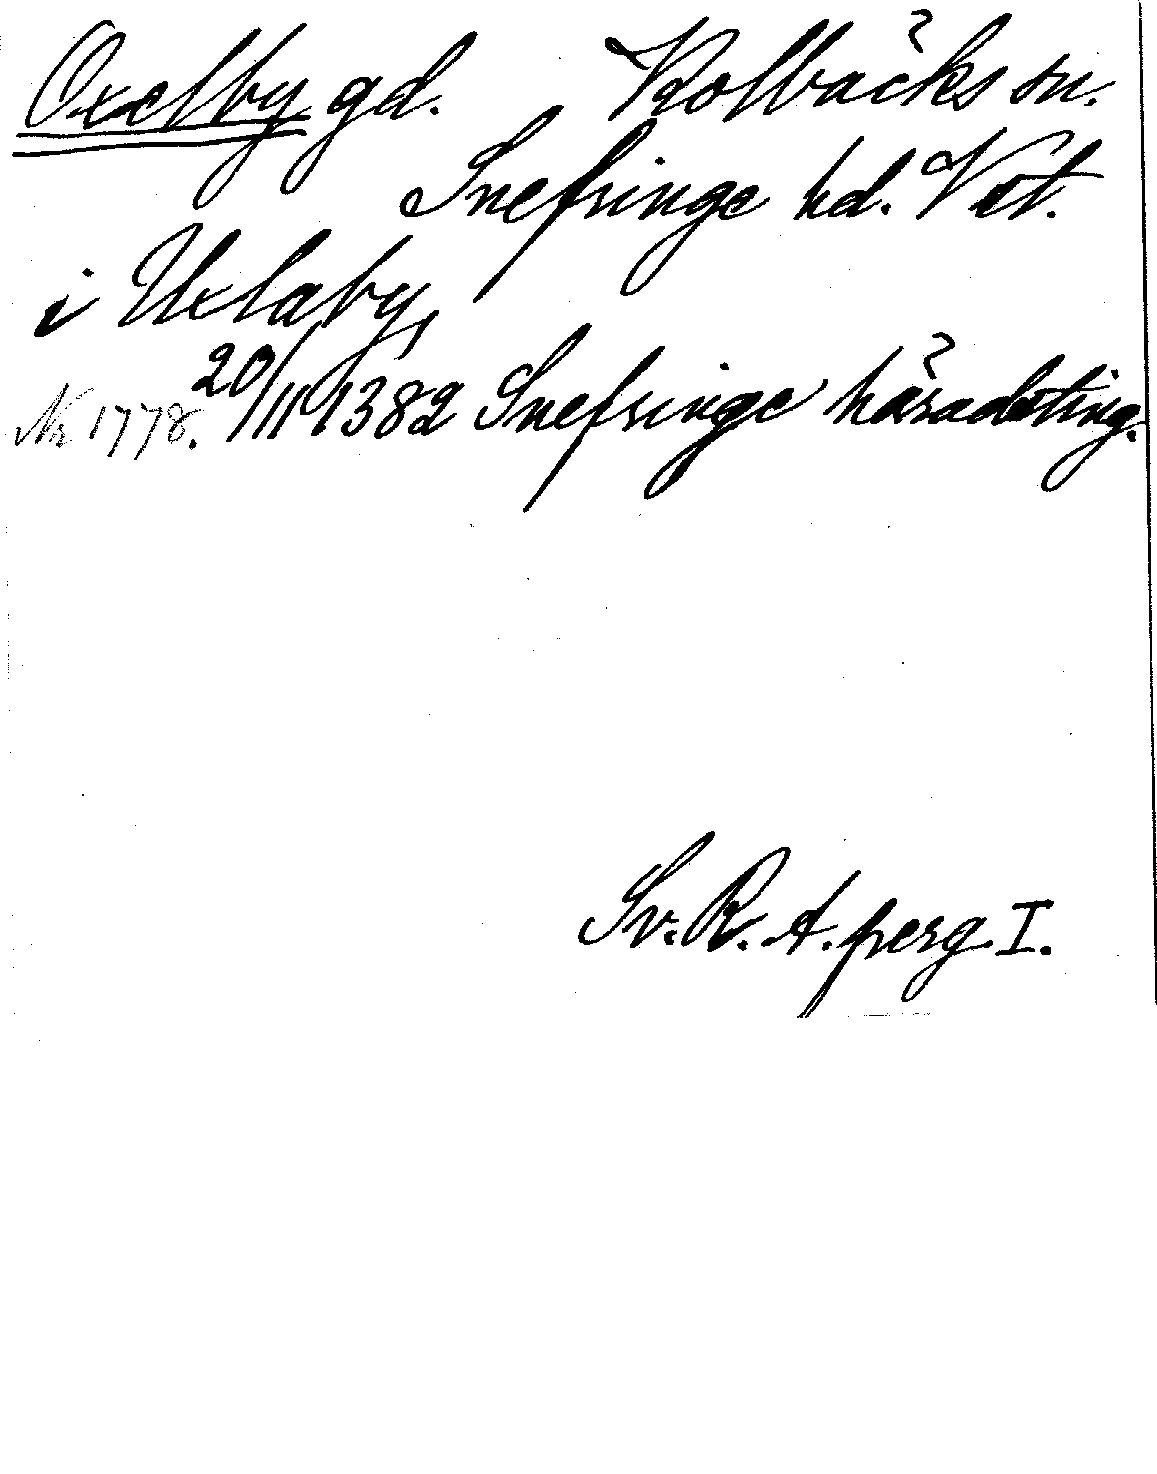 Oxelby gd. Kolbäcks sn.
Snefringe hd. Vst.
i Uxlaby,
Nr 1778. 20/11 1382 Snefringe häradsting.
Sv. R. A. perg. I.